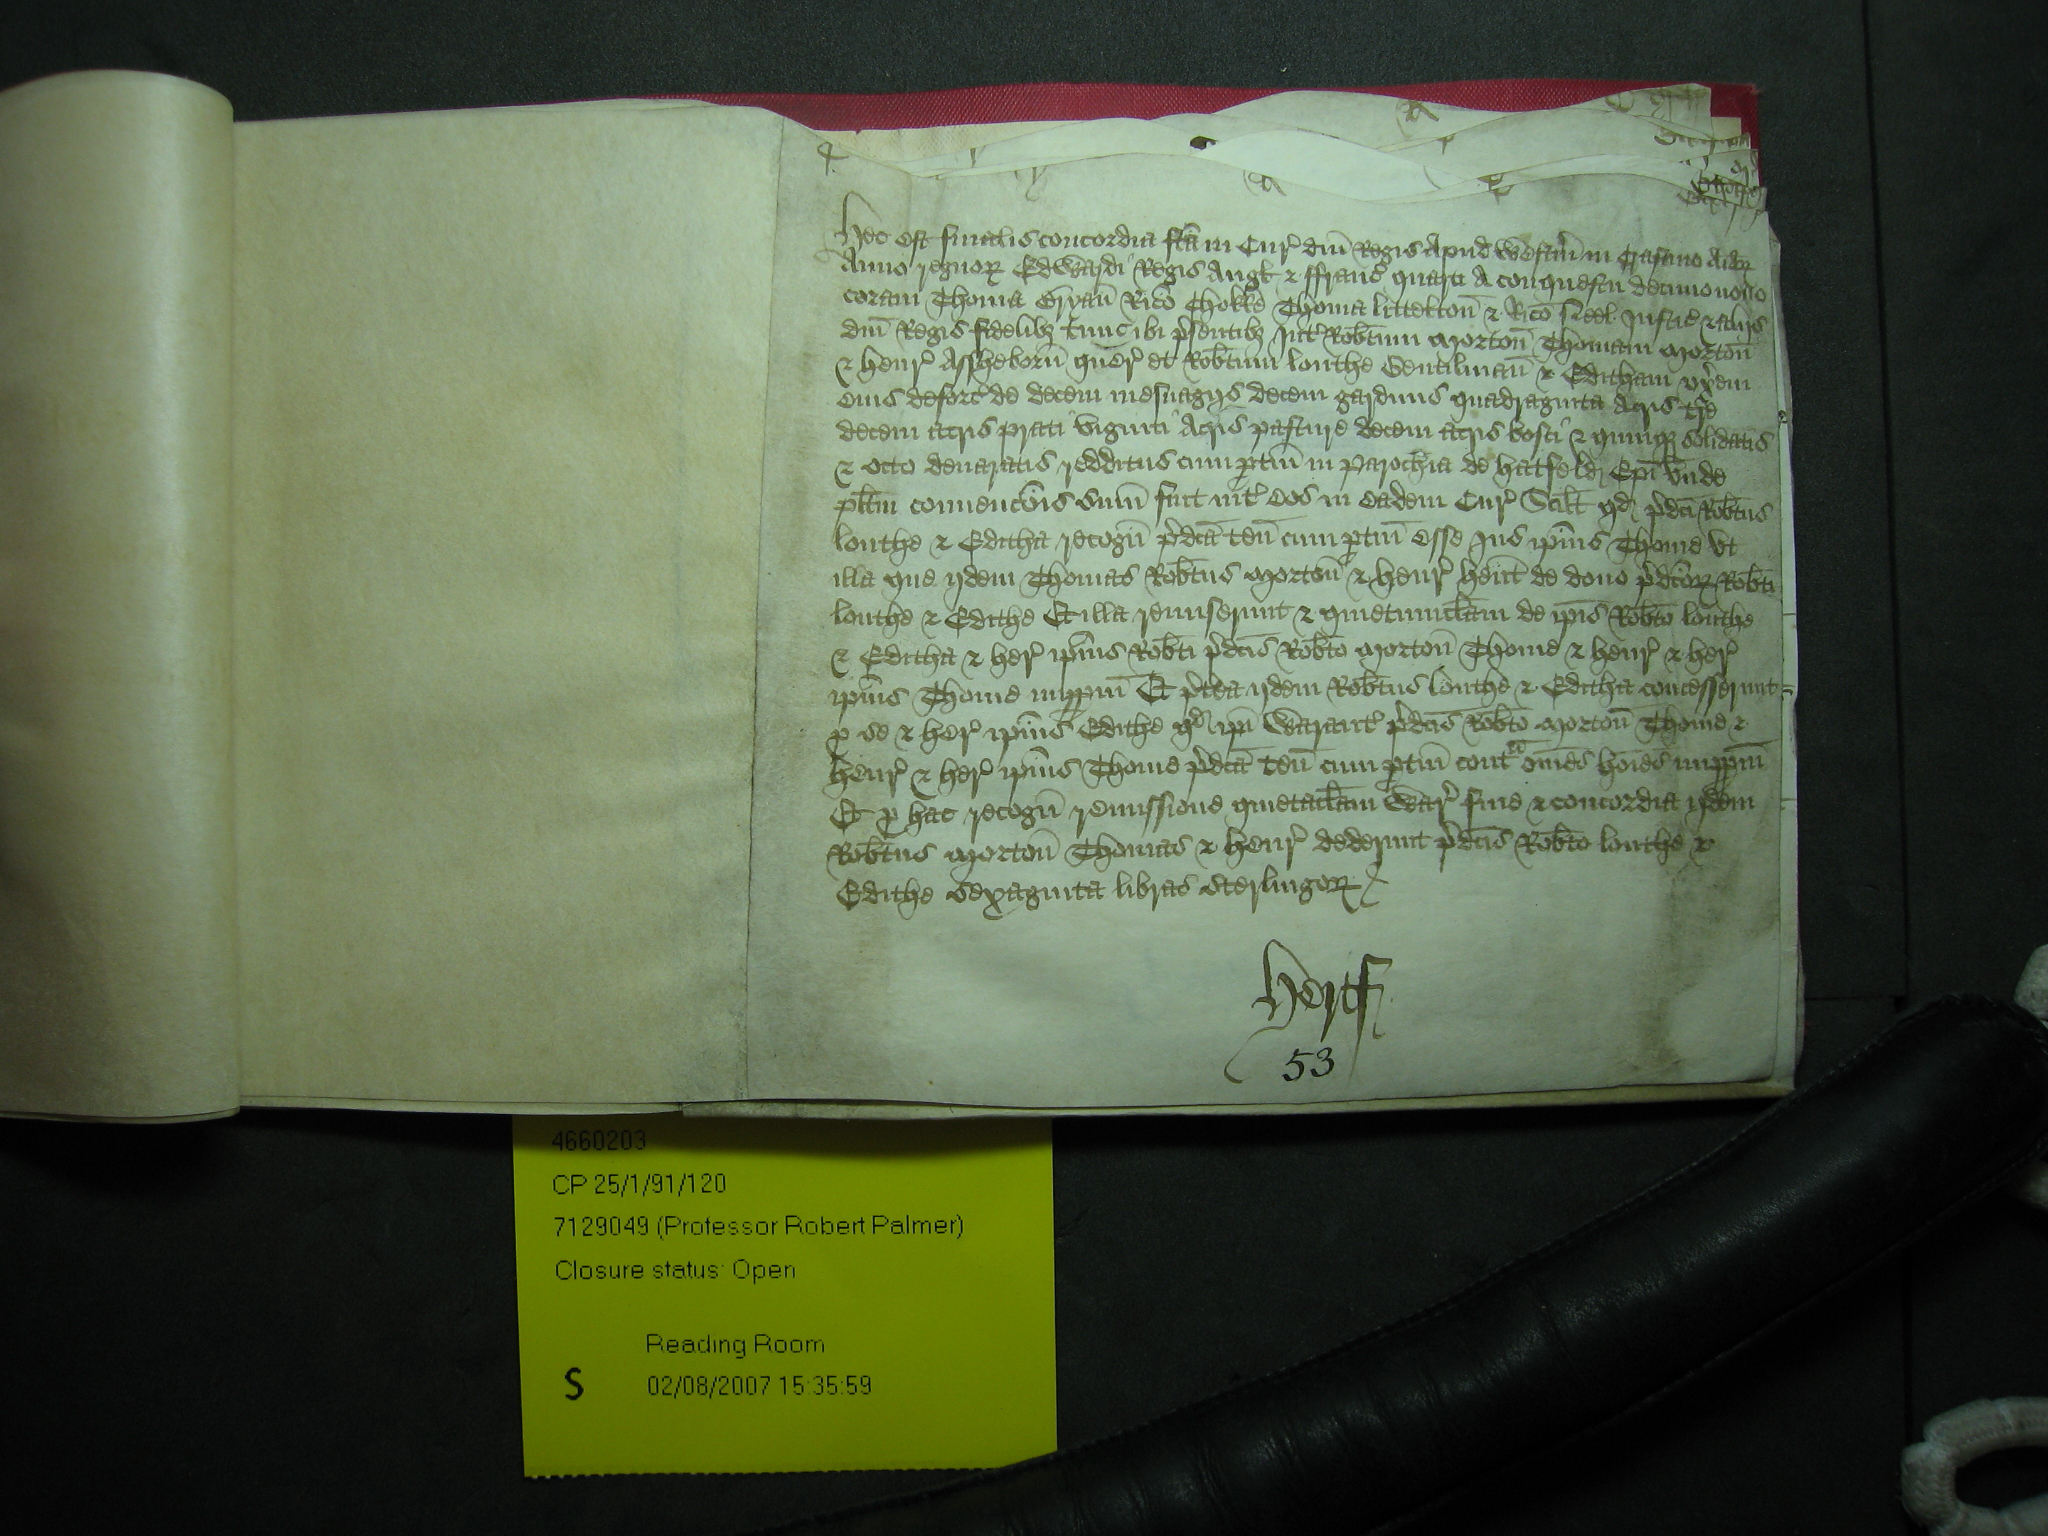 Hec est finalis concordia fca in Cur dni Regis apud Westm in Crastino Aiar
Anno regnor Edwardi Regis Angl & ffranc quarti a conquestu decimonono
coram Thoma Bryan Rico Chokke Thoma Littelton & Rico Neel Justic & aliis
dni Regis fidelibz tunc ibi psentibz Int Robtum Morton Thomam Morton
& Henr Assheborn quer et Robtum Louthe Gentilman & Editham uxem
eius deforc de decem mesuagijs decem gardinis quadraginta acris tre
decem acris prati viginti acris pasture decem acris bosci & quinqz solidatis
& octo denaratis redditus cum ptin in parochia de Hatfeld Epi Unde
plitm convencois sum fuit int eos in eadem Cur Scilt qd pdci Robtus
Louthe & Editha recogn pdca ten cum ptin esse Jus ipius Thome ut
illa que ijdem Thomas Robtus Morton & Henr hent de dono pdcor Robti
Louthe & Edithe Et illa remiserunt & quietumclam de ipis Robto Louthe
& Editha & her ipius Robti pdcis Robto Morton Thome & Henr & her
ipius Thome imppm Et ptea ijdem Robtus Louthe & Editha concesserunt
p se & her ipius Edithe qd ipi Warant pdcis Robto Morton Thome &
Henr & her ipius Thome pdca ten cum ptin contra omes hoies imppm
Et p hac recogn remissione quietaclam War fine & concordia ijdem
Robtus Morton Thomas & Henr dederunt pdcis Robto Louthe &
Edithe sexaginta libras sterlingor
Hertf
53
4660203
CP 25/1/91/120
7129049 (Professor Robert Palmer)
Closure status: Open
Reading Room
S 02/08/2007 15:35:59